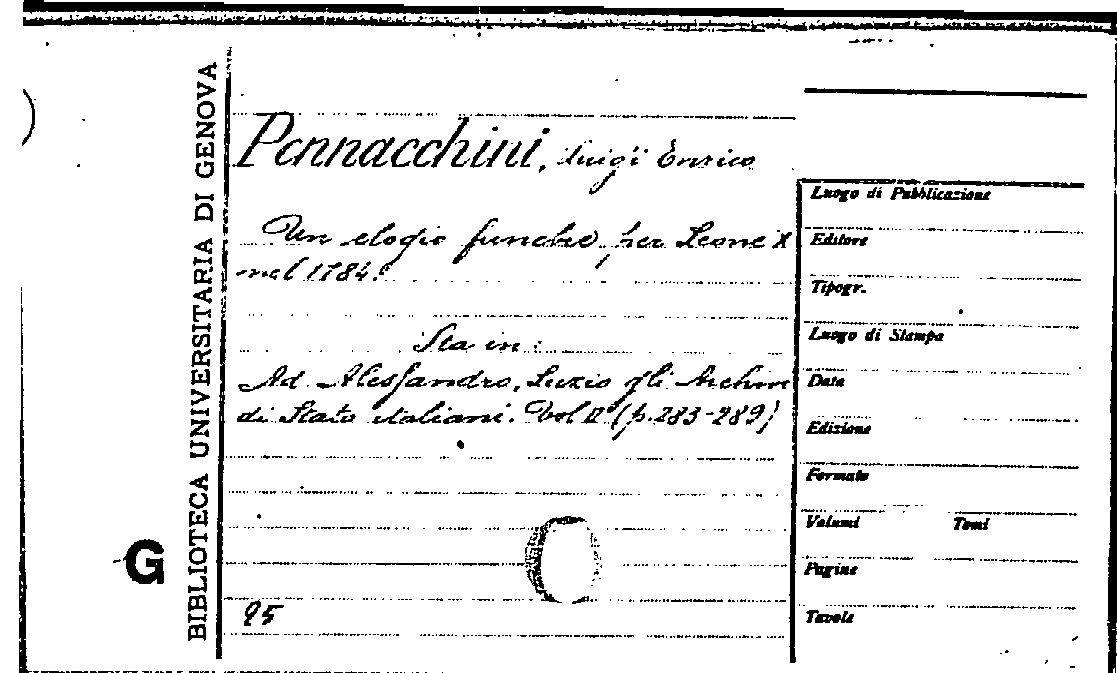 BIBLIOTECA UNIVERSITARIA DI GENOVA
G
Pennacchini, Luigi Enrico
Un elogio funebre per Leone X
nel 1784.
Sta in:
Ad Alessandro Luzio gli Archivi
di Stato italiani. Vol IIº (p. 283-289)
95
Luogo di Pubblicazione
Editore
Tipogr.
Luogo di Stampa
Data
Edizione
Formato
Volumi Tomi
Pagine
Tavole